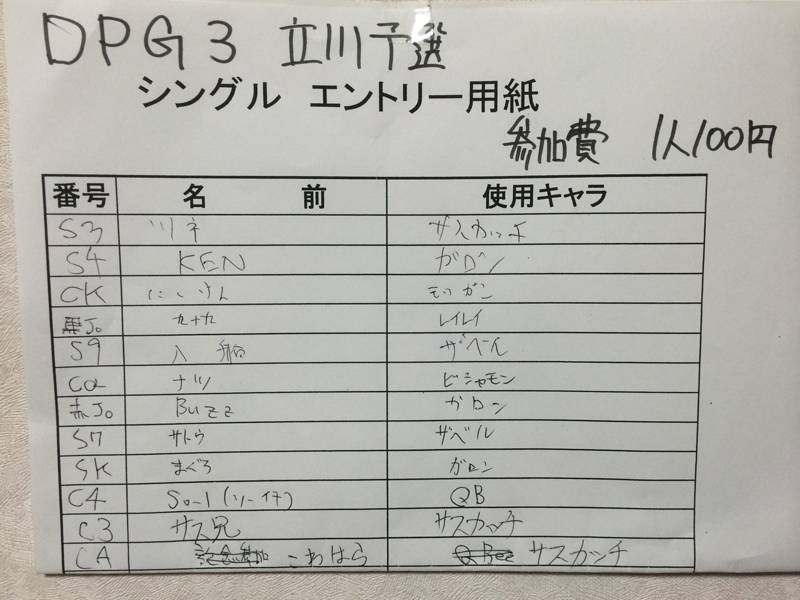 DPG3 立川予選
シングル エントリー用紙
参加費 1人100円
番号 名 前 使用キャラ
S3 ツネ サスカッチ
S4 KEN ガロン
CK にしけん モリガン
黒Jo 九十九 レイレイ
S9 入船 ザベール
Cα ナツ ビシャモン
赤Jo Buzz ガロン
S7 サトウ ザベル
SK まぐろ ガロン
C4 So-1(ソーイチ) QB
C3 サス兄 サスカッチ
CA こわはら サスカッチ